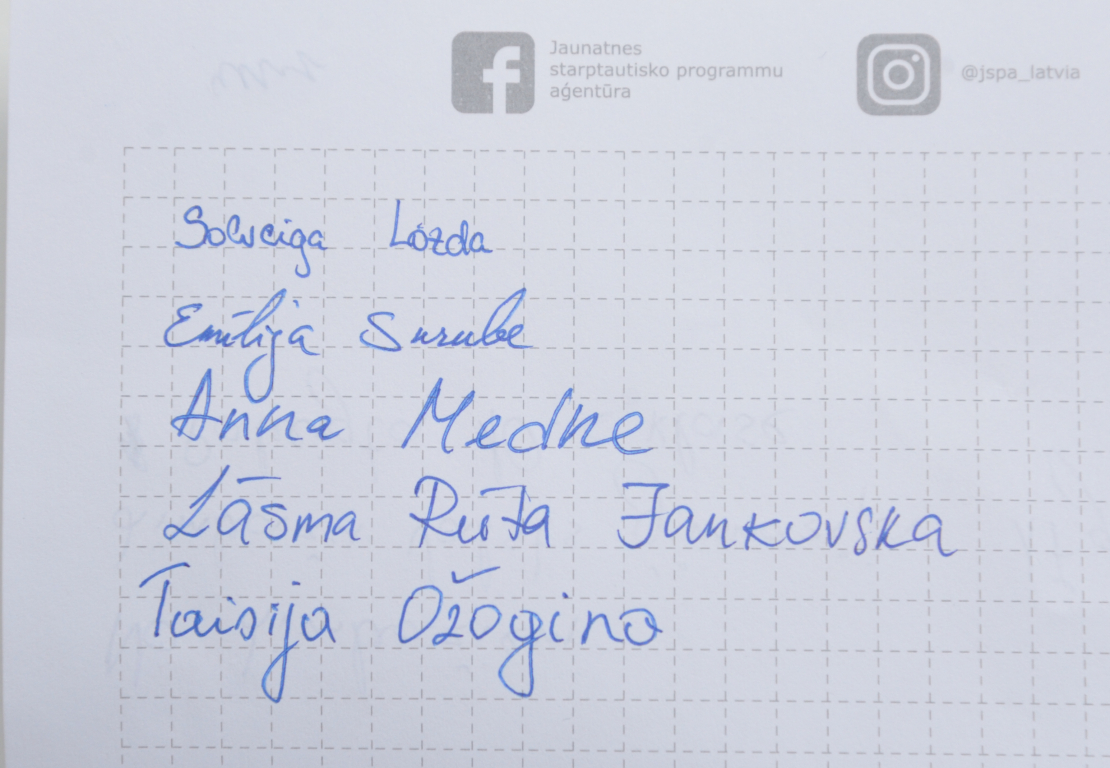 Jaunatnes
starptautisko programmu
aģentūra
@jspa_latvia
Solveiga Lozda
Emīlija Surube
Anna Medne
Lāsma Rūta Jankovska
Taisija Ožogina